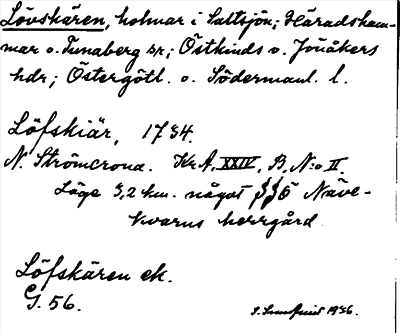 Lövskären, holmar i Saltsjön; Häradsham-
mar o. Tunaberg sr; Östkinds o. Jönåkers
hdr; Östergötl. o. Södermanl. l.
Löfskiär, 1734.
N. Strömcrona. Kr.A, XXIV, B, N:o II.
Läge 3,2 km. något SSÖ Näve-
kvarns herrgård
Löfskären ek.
G. 56.
1936.